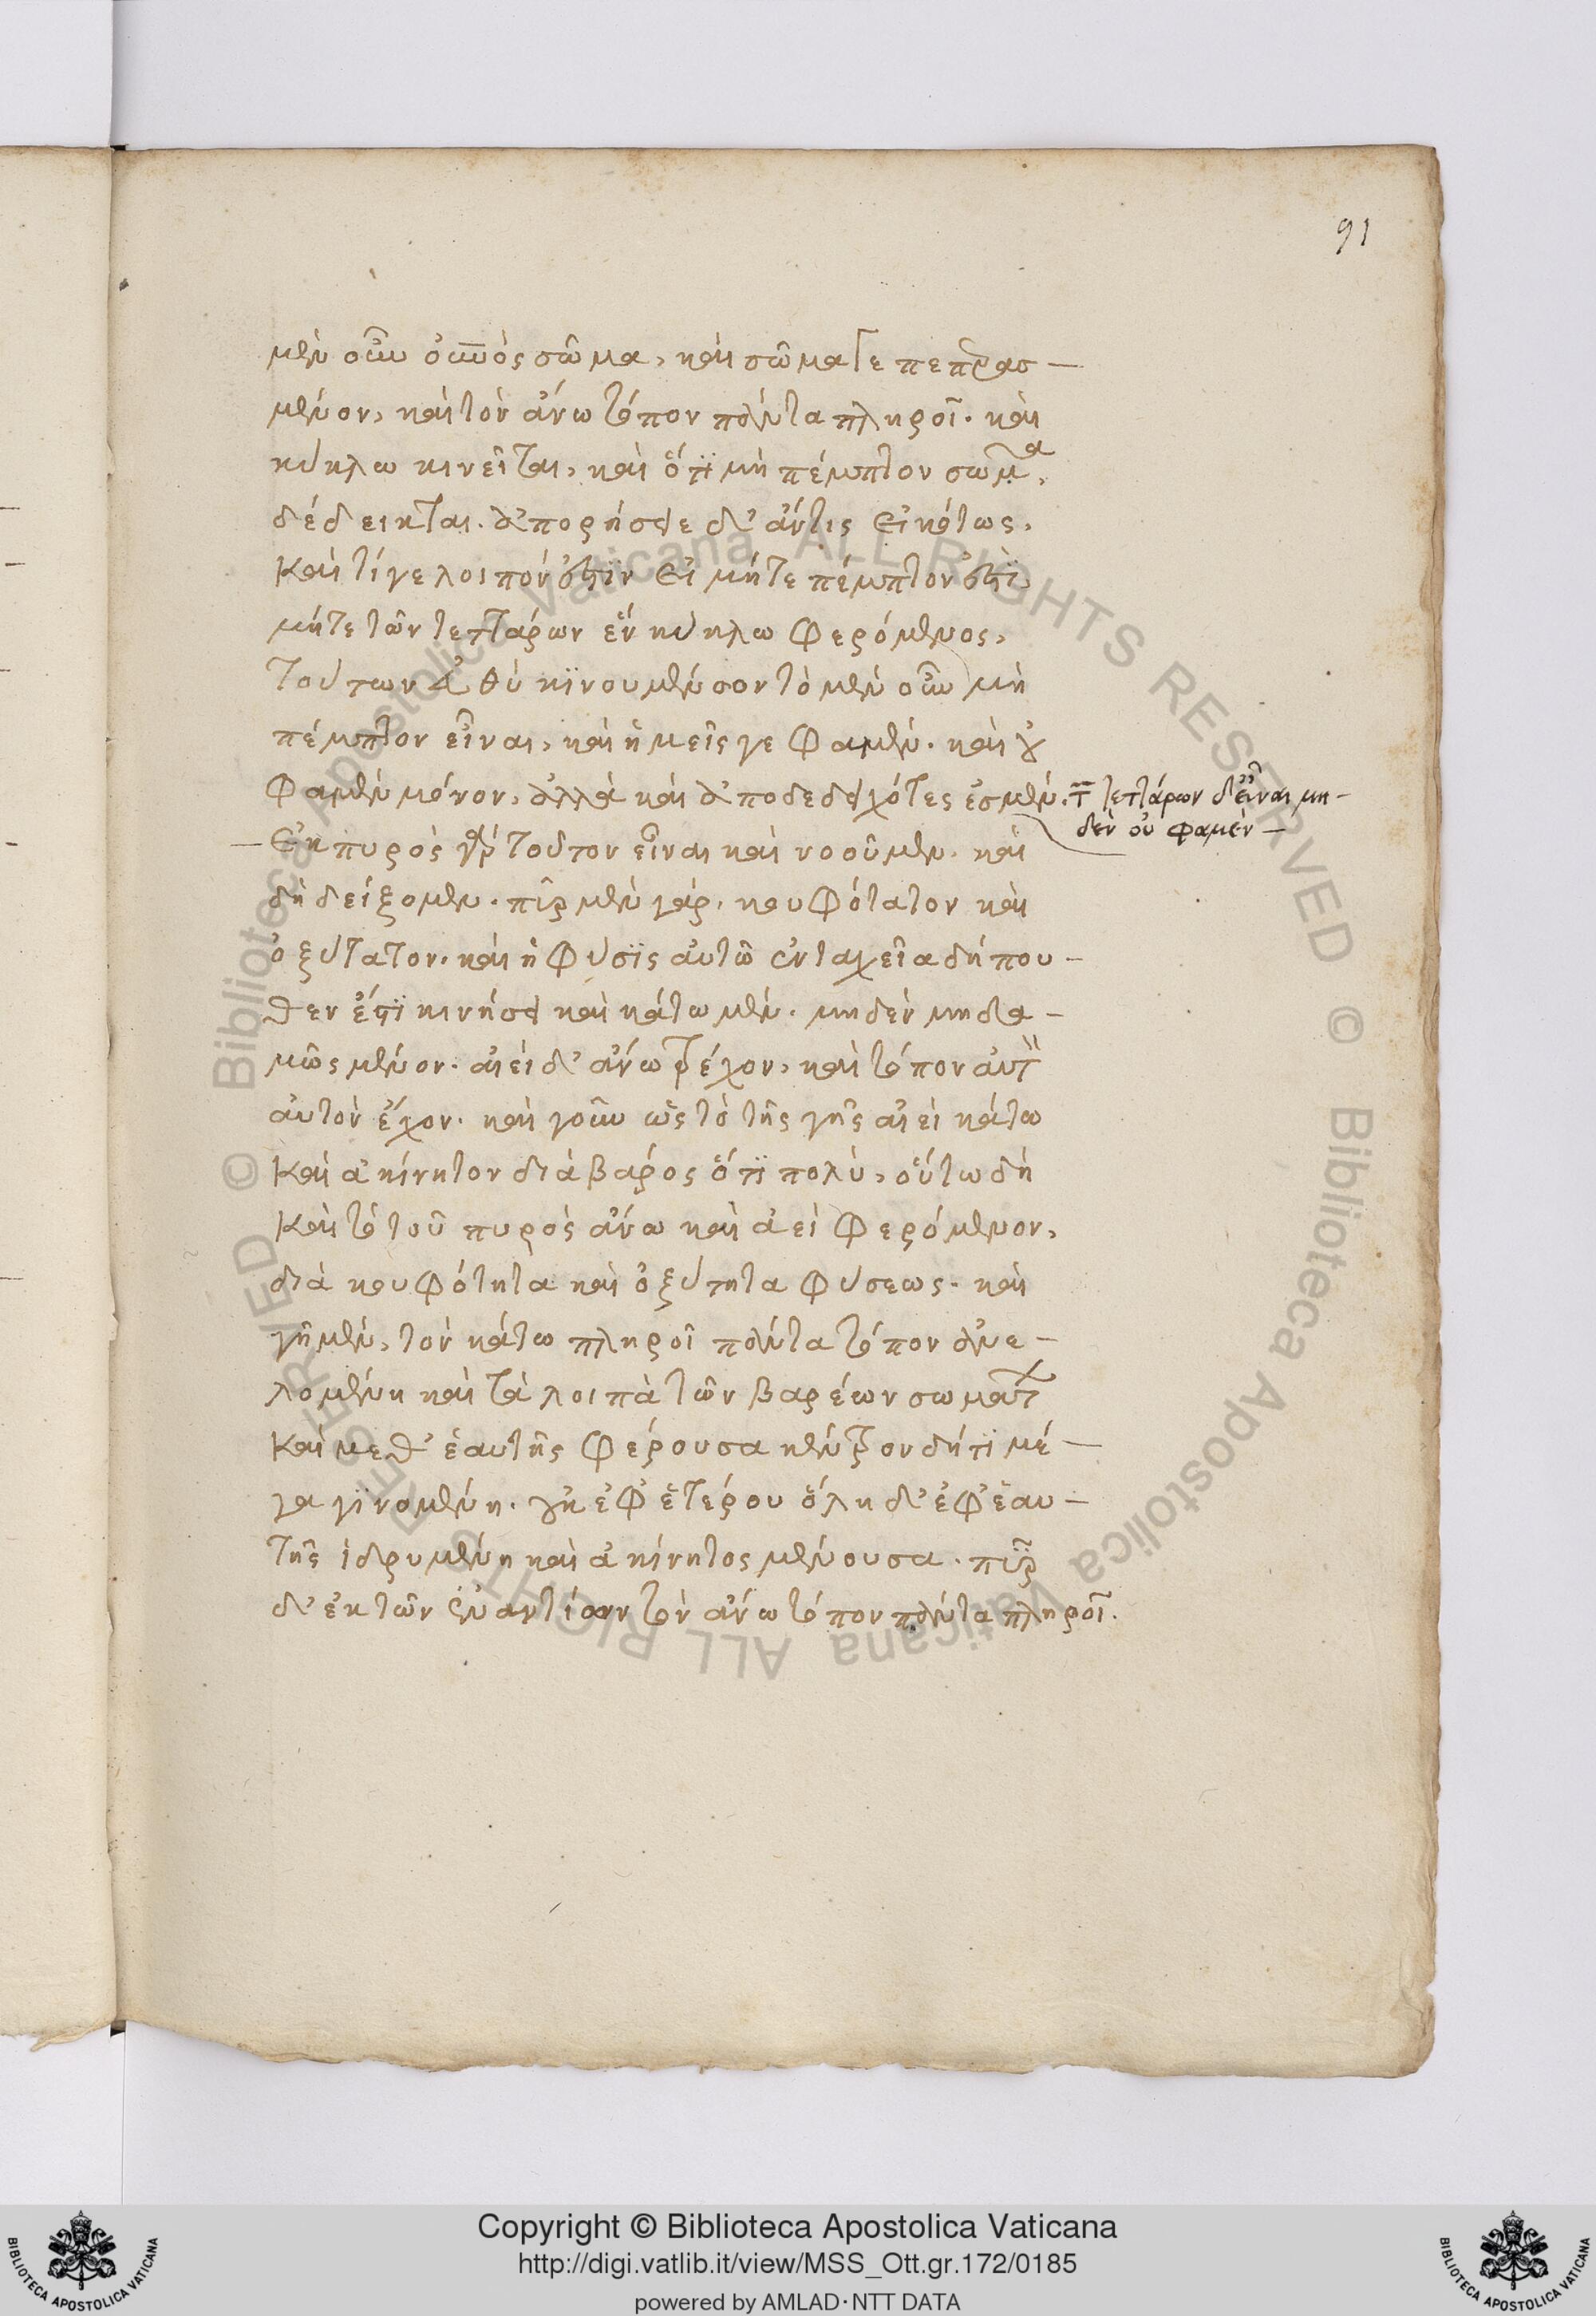 91
μὲν οὖν οὐνὸς σῶμα, καὶ σῶμά γε πεπερασ—
μένον, καὶ τὸν ἄνω τόπον πάντα πληροῖ. καὶ
κύκλω κινεῖται, καὶ ὅτι μὴ πέμπτον σῶμα,
δέδεικται. ἀπορήσειε δ' ἄν τις εἰκότως,
καὶ τί γε λοιπόν ἐστιν εἰ μήτε πέμπτον ἐστὶ
μήτε τῶν τεττάρων ἓν κύκλω φερόμενος,
τούτων εὐθὺ κινουμένων τὸ μὲν οὖν μὴ
πέμπτον εἶναι, καὶ ἡμεῖς γε φαμέν. καὶ οὐ
φαμὲν μόνον, ἀλλὰ καὶ ἀποδεδειχότες ἐσμέν. τῶν τεττάρων δ' εἶναι μη—
δὲν οὐ φαμὲν—
—ἐκ πυρὸς γὰρ τοῦτον εἶναι καὶ νοοῦμεν. καὶ
δὴ δείξομεν. πῦρ μὲν γάρ, κουφότατον καὶ
ὀξύτατον. καὶ ἡ φύσις αὐτῶ ἐν ταχεῖα δήπου—
θεν ἐστὶ κινήσει καὶ κάτω μὲν. μηδὲν μηδα—
μῶς μένον. αἰεὶ δ' ἄνω τρέχον, καὶ τόπον αὐτ
αὐτὸν ἔχον. καὶ γοῦν ὡς τὸ τῆς γῆς αἰεὶ κάτω
καὶ ἀκίνητον διὰ βάρος ὅτι πολὺ, οὕτω δὴ
καὶ τὸ τοῦ πυρὸς ἄνω καὶ ἀεὶ φερόμενον,
διὰ κουφότητα καὶ ὀξύτητα φύσεως. καὶ
γῆ μὲν, τὸν κάτω πληροῖ πάντα τόπον ἀνε—
λομένη καὶ τὰ λοιπὰ τῶν βαρέων σωμάτων
καὶ μεθ' ἑαυτῆς φέρουσα κέντρον δή τι μέ—
γα γινομένη. οὐκ ἐφ' ἑτέρου ὅλη δ' ἐφ' ἑαυ—
τῆς ἱδρυμένη καὶ ἀκίνητος μένουσα. πῦρ
δ' ἐκ τῶν ἐναντίων τὸν ἄνω τόπον πάντα πληροῖ.
Copyright © Biblioteca Apostolica Vaticana
http://digi.vatlib.it/view/MSS_Ott.gr.172/0185
powered by AMLAD·NTT DATA